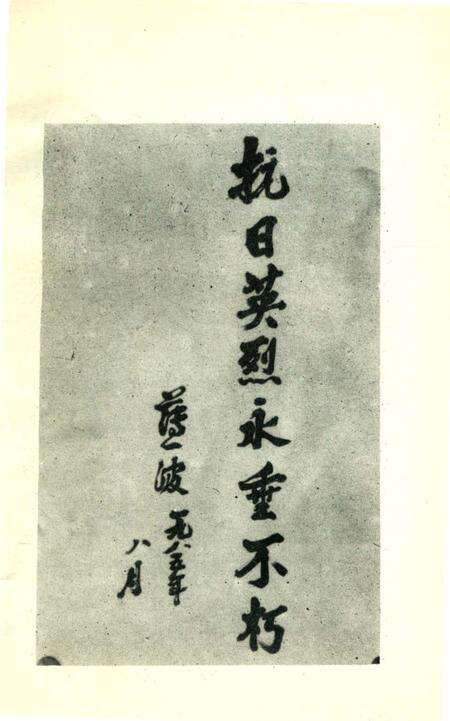 抗日英烈永垂不朽
薄一波 一九八五年
八月